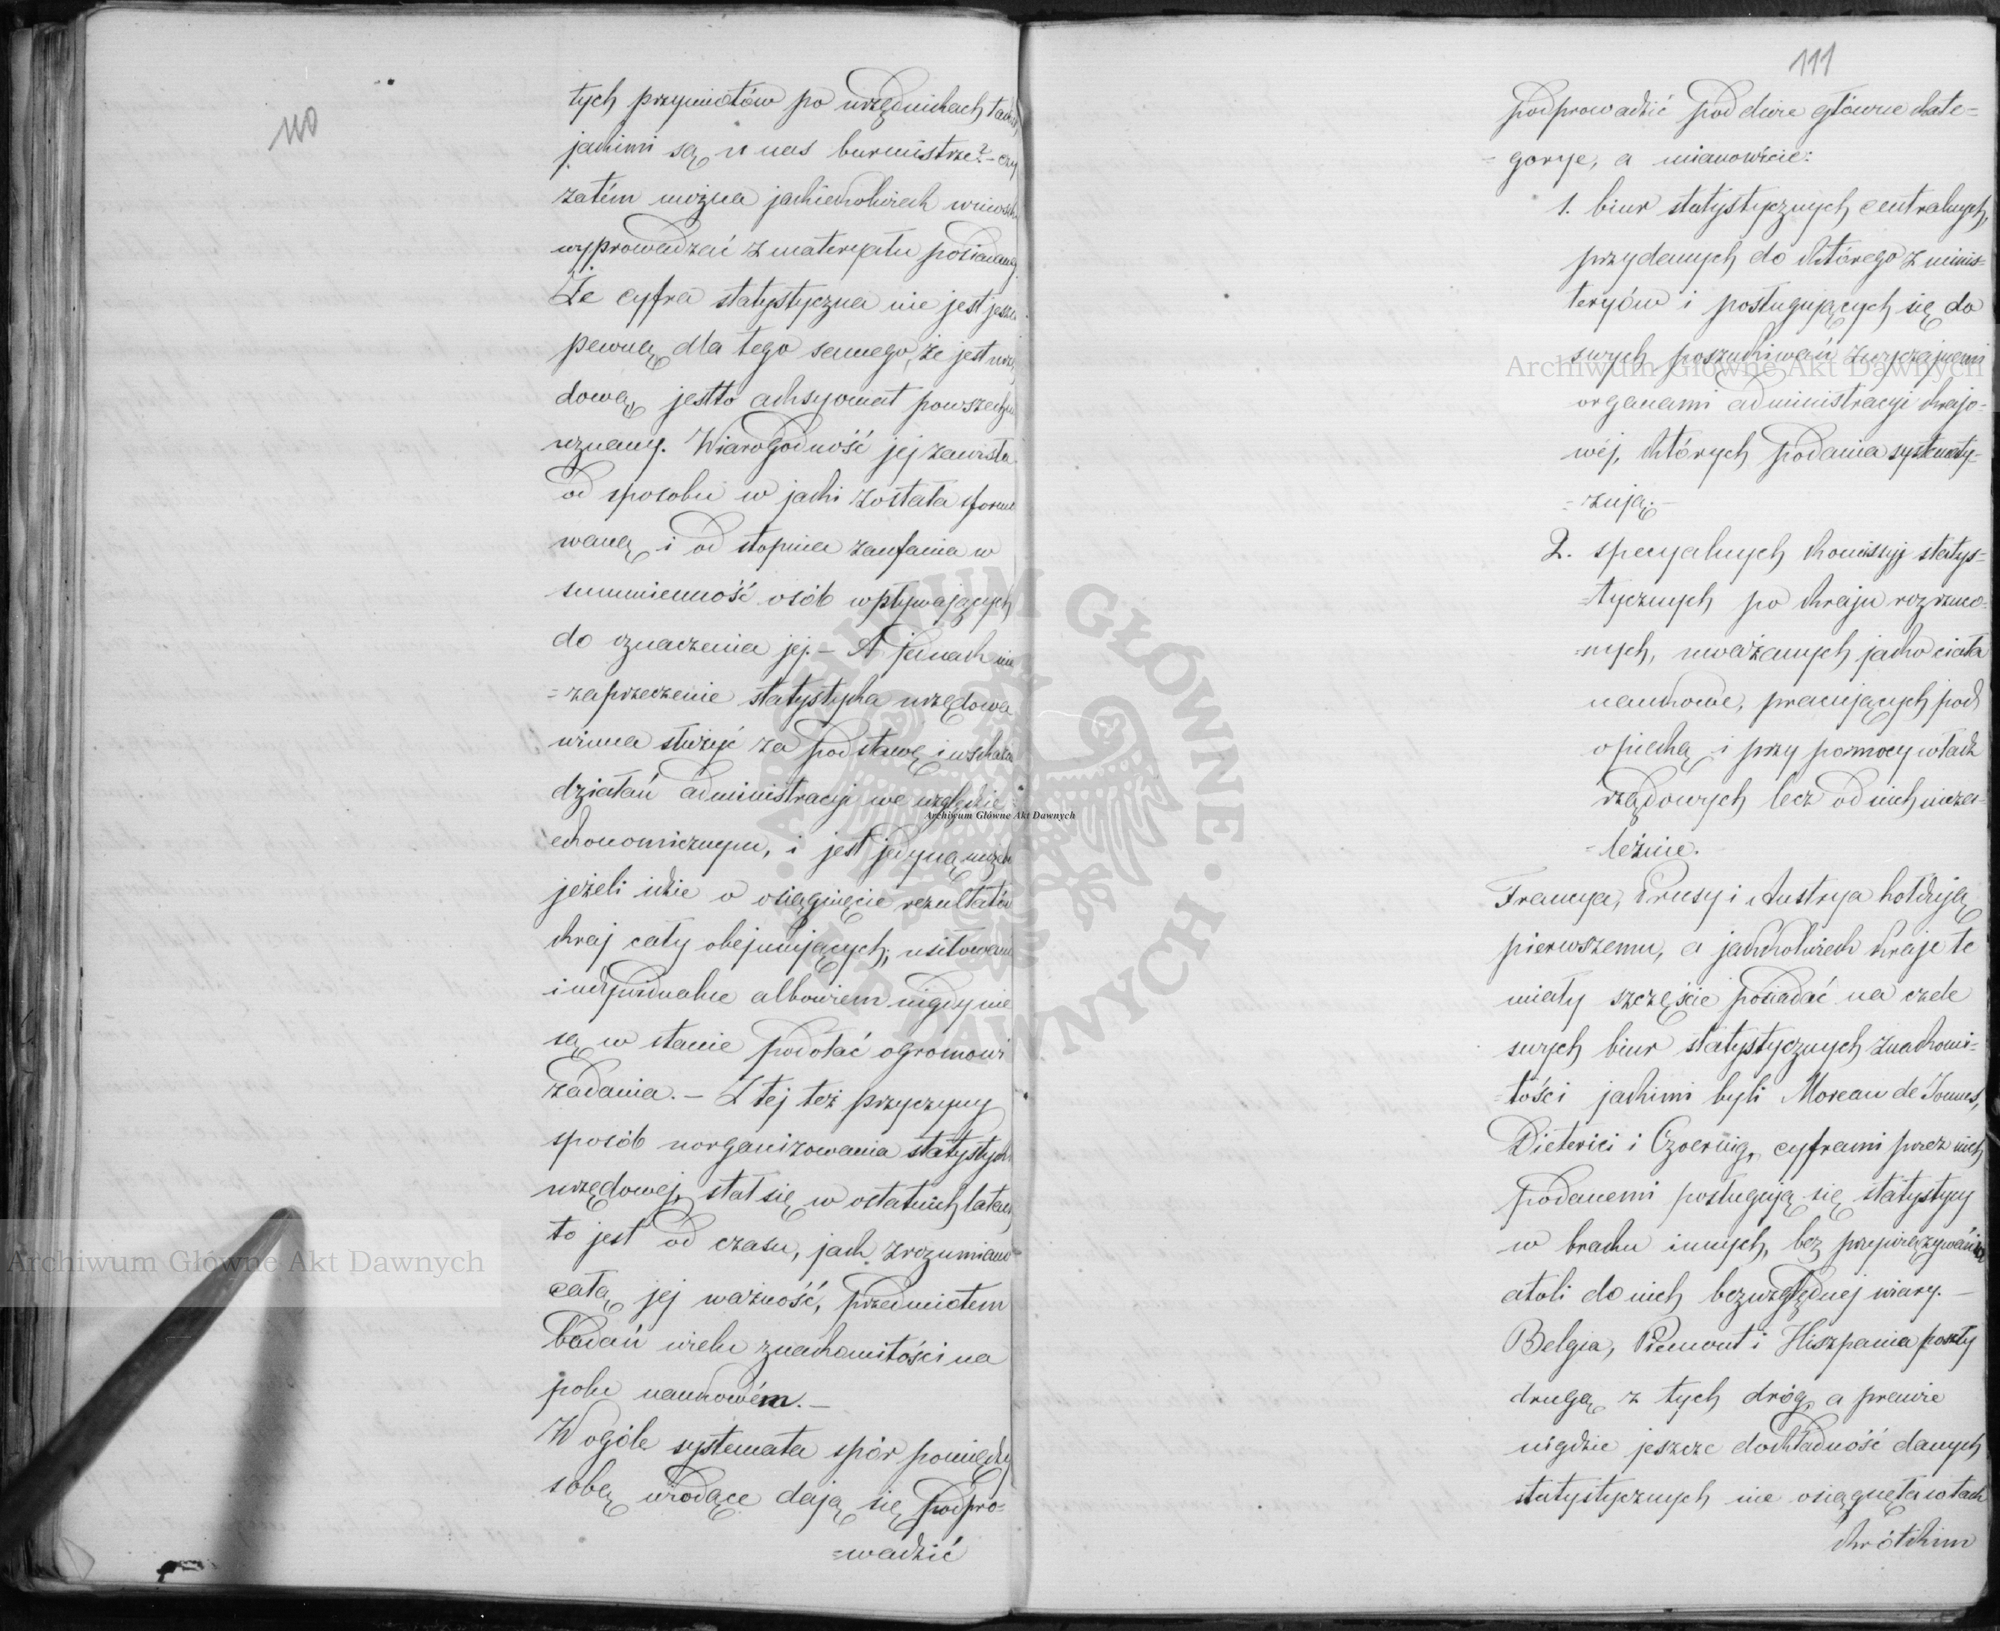 110
tych przymiotów po urzędnikach
jakimi są u nas burmistrze? – czy
zatém można jakiekolwiek
wyprowadzać z materyału
Że cyfra statystyczna nie jest
pewną dla tego samego, że jest
dową, jestto aksyomat
uznany. Wiarogodność jej zawisła
od sposobu w jaki została
waną i od stopnia zaufania w
summienność osób wpływających
do oznaczenia jej. – A jednak nie
=zaprzeczenie statystyka urzędowa
winna służyć za podstawę i
działań administracyi we względzie
ekonomicznym, i jest jedyną
jeżeli idzie o osiągnięcie rezultatów
kraj cały obejmujących; usiłowania
indywidualne albowiem nigdy nie
są w stanie podołać ogromowi
zadania. – Z tej też przyczyny
sposób uorganizowania
urzędowej, stał się w ostatnich latach
to jest od czasu, jak zrozumiano
całą jej ważność, przedmiotem
badań wielu znakomitości na
polu naukowém. –
W ogóle systemata spór pomiędzy
sobą wiodące dają się podpro=
=wadzić
111
podprowadzić pod dwie główne kate=
=gorye, a mianowicie:
1. biur statystycznych centralnych,
przydanych do którego z minis=
teryów i posługujących się do
swych poszukiwań zwyczajnemi
organami administracyi krajo=
wéj, których podania systematy=
=zują; –
2. specyalnych kommissyj statys=
=tycznych po kraju rozrzuco=
=nych, uważanych jako ciała
naukowe, pracujących pod
opieką i przy pomocy władz
rządowych lecz od nich nieza=
=leżnie.
Francya, Prusy i Austrya hołdują
pierwszemu, a jakkolwiek kraje te
miały szczęście posiadać na czele
swych biur statystycznych znakomi=
=tości jakimi byli Moreau de Jonnes,
Dieterici i Czoernig, cyframi przez nich
podanemi posługują się statystycy
w braku innych, bez przywiązywania
atoli do nich bezwzględnej wiary. –
Belgia, Piemont i Hiszpania poszły
drugą z tych dróg, a prawie
nigdzie jeszcze dokładność danych
statystycznych nie osiągnęta w tak
krótkim
Archiwum Główne Akt Dawnych
Archiwum Główne Akt Dawnych
Archiwum Główne Akt Dawnych
ARCHIWUM GŁÓWNE AKT DAWNYCH